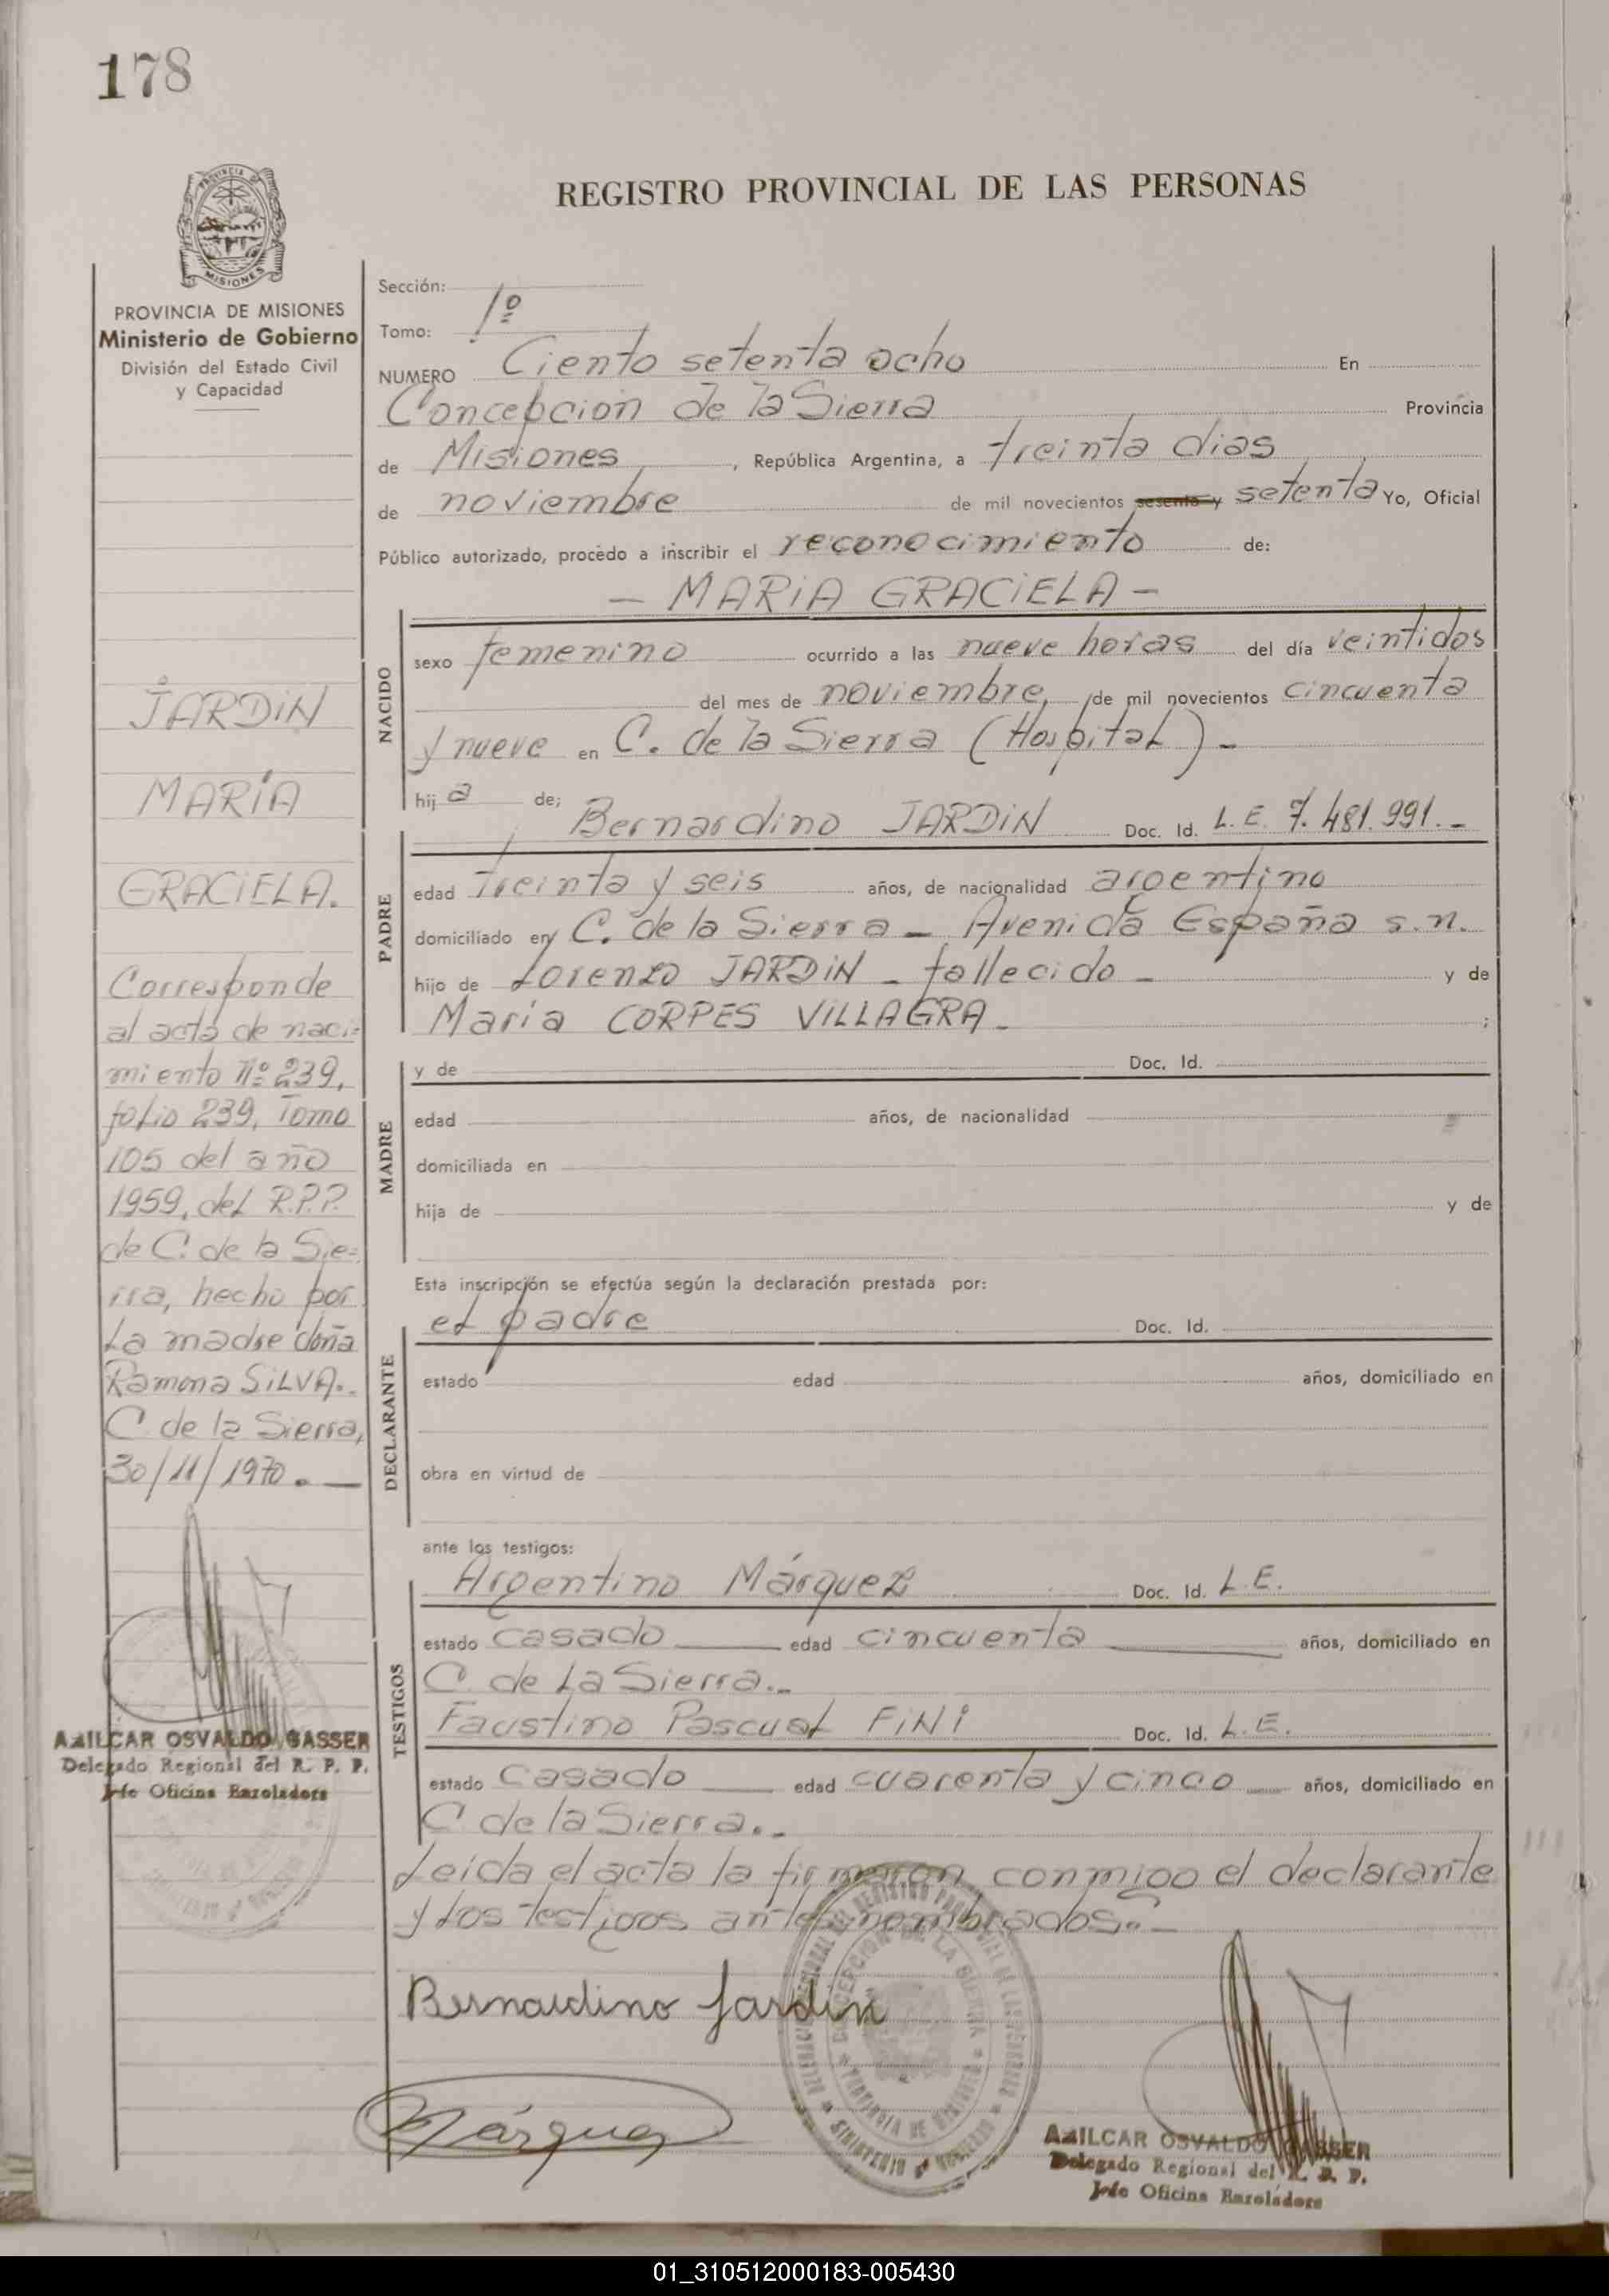 178
REGISTRO PROVINCIAL DE LAS PERSONAS
PROVINCIA DE MISIONES
Ministerio de Gobierno
División del Estado Civil
y Capacidad
JARDIN
MARÍA
GRACIELA.
Corresponde
al acta de naci=
miento Nº 239,
folio 239, Tomo
105 del año
1959, del R.P.P.
de C. de la Sie=
rra, hecho por
La madre doña
Ramona SILVA.
C. de la Sierra,
30/11/1970. —
AMILCAR OSVALDO GASSER
Delegado Regional del R. P. P.
Jefe Oficina Enroladora
Sección:
Tomo: 1º
NUMERO Ciento setenta ocho En
Concepcion de la Sierra Provincia
de Misiones, República Argentina, a treinta dias
de noviembre de mil novecientos sesenta y setenta Yo, Oficial
Público autorizado, procedo a inscribir el reconocimiento de:
— MARIA GRACIELA —
NACIDO
sexo femenino ocurrido a las nueve horas del día veintidos
del mes de noviembre, de mil novecientos cincuenta
y nueve en C. de la Sierra (Hospital) -
hij a de; Bernardino JARDIN Doc. Id. L. E. 7.481.991.-
PADRE
edad treinta y seis años, de nacionalidad argentino
domiciliado en C. de la Sierra - Avenida España s.n.
hijo de Lorenzo JARDIN - fallecido - y de
María CORPES VILLAGRA - ;
MADRE
y de Doc. Id.
edad años, de nacionalidad
domiciliada en
hija de y de
Esta inscripción se efectúa según la declaración prestada por:
DECLARANTE
el padre Doc. Id.
estado edad años, domiciliado en
obra en virtud de
ante los testigos:
TESTIGOS
Argentino Márquez Doc. Id. L.E.
estado casado edad cincuenta años, domiciliado en
C. de La Sierra.-
Faustino Pascual FINI Doc. Id. L.E.
estado casado edad cuarenta y cinco años, domiciliado en
C. de la Sierra.-
Leida el acta la firmaron conmigo el declarante
y los testigos antes nombrados.-
Bernardino Jardin
Márquez
AMILCAR OSVALDO GASSER
Delegado Regional del R. P. P.
Jefe Oficina Enroladora
01_310512000183-005430